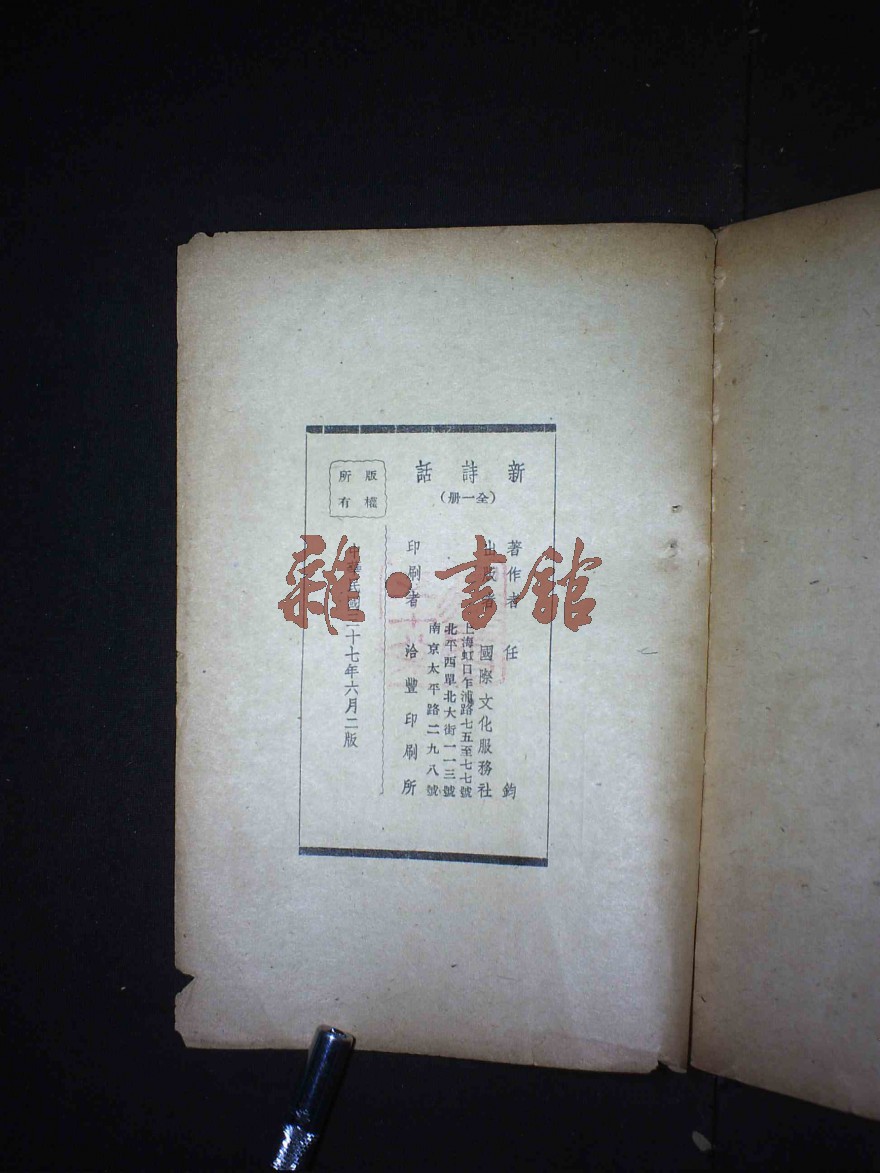 新詩話
(全一册)
版權所有
著作者 任鈞
出版者 國際文化服務社
上海虹口乍浦路七五至七七號
北平西單北大街一一三號
南京太平路二九八號
印刷者 洽豐印刷所
中華民國三十七年六月二版
雜·書館